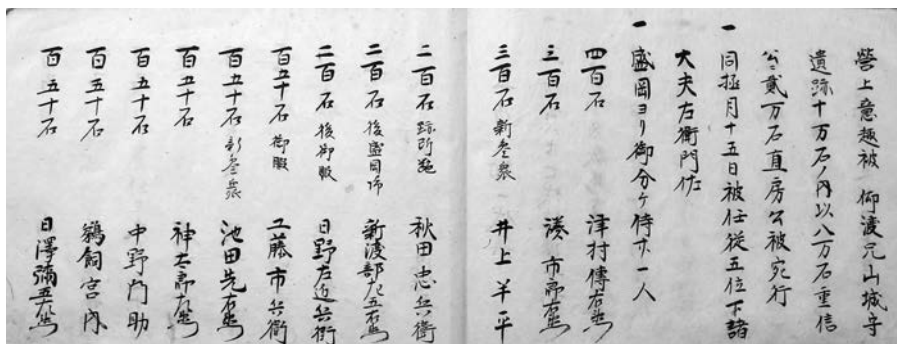 營上意趣被 仰渡兄山城守
遺跡十万石ノ内以八万石重信
公ニ貳万石直房公被宛行
一 同極月十五日被任従五位下諸
大夫左衛門佐
一 盛岡ヨリ御分ケ侍廿一人
四百石 津村傳右衛門
三百石 湊市郎右衛門
三百石 新参衆 井上半平
二百石 秋田忠兵衛
二百石 後盛岡 新渡部 五右衛門
二百石 後御暇 日野左近兵衛
百五十石 御暇 工藤市兵衛
百五十石 新参衆 池田 右衛門
百五十石 神 右衛門
百五十石 中野門助
百五十石 鵜飼宮内
百五十石 日澤彌五右衛門